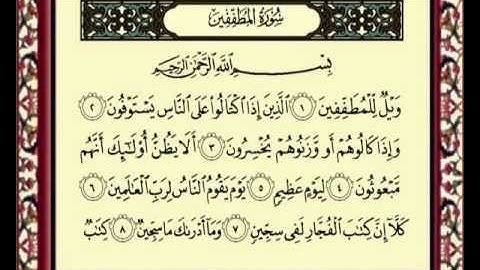 سُورَةُ المُطَفِّفِينَ
بِسْمِ اللَّهِ الرَّحْمَٰنِ الرَّحِيمِ
وَيْلٌ لِّلْمُطَفِّفِينَ ١ الَّذِينَ إِذَا اكْتَالُوا عَلَى النَّاسِ يَسْتَوْفُونَ ٢
وَإِذَا كَالُوهُمْ أَو وَّزَنُوهُمْ يُخْسِرُونَ ٣ أَلَا يَظُنُّ أُولَٰئِكَ أَنَّهُم
مَّبْعُوثُونَ ٤ لِيَوْمٍ عَظِيمٍ ٥ يَوْمَ يَقُومُ النَّاسُ لِرَبِّ الْعَالَمِينَ ٦
كَلَّا إِنَّ كِتَابَ الْفُجَّارِ لَفِي سِجِّينٍ ٧ وَمَا أَدْرَاكَ مَا سِجِّينٌ ٨ كِتَابٌ